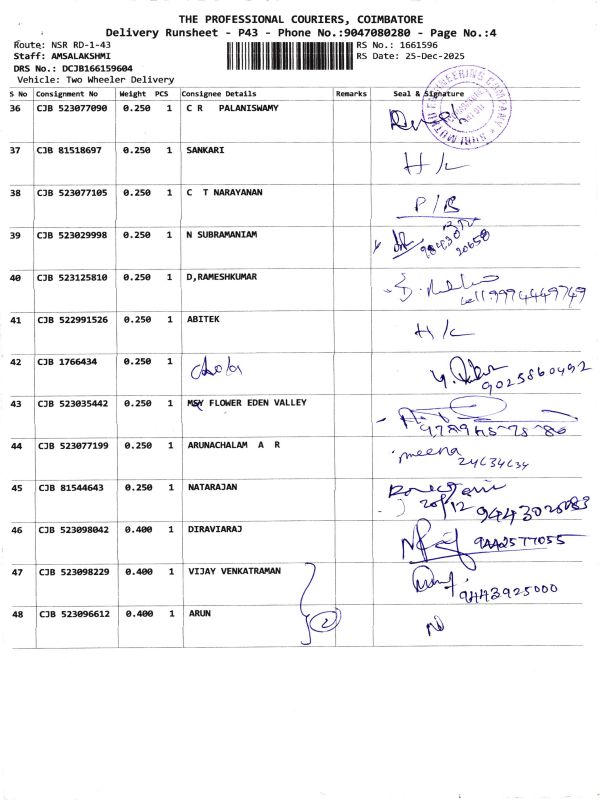 THE PROFESSIONAL COURIERS, COIMBATORE
Delivery Runsheet - P43 - Phone No.:9047080280 - Page No.:4
Route: NSR RD-1-43 RS No.: 1661596
Staff: AMSALAKSHMI RS Date: 25-Dec-2025
DRS No.: DCJB166159604
Vehicle: Two Wheeler Delivery
S No Consignment No Weight PCS Consignee Details Remarks Seal & Signature
36 CJB 523077090 0.250 1 C R PALANISWAMY
37 CJB 81518697 0.250 1 SANKARI H/c
38 CJB 523077105 0.250 1 C T NARAYANAN P/B
39 CJB 523029998 0.250 1 N SUBRAMANIAM 98430 20658
40 CJB 523125810 0.250 1 D,RAMESHKUMAR
41 CJB 522991526 0.250 1 ABITEK H/c
42 CJB 1766434 0.250 1 9025860492
43 CJB 523035442 0.250 1 MSY FLOWER EDEN VALLEY
44 CJB 523077199 0.250 1 ARUNACHALAM A R meena 24634634
45 CJB 81544643 0.250 1 NATARAJAN
46 CJB 523098042 0.400 1 DIRAVIARAJ
47 CJB 523098229 0.400 1 VIJAY VENKATRAMAN 9443925000
48 CJB 523096612 0.400 1 ARUN 2